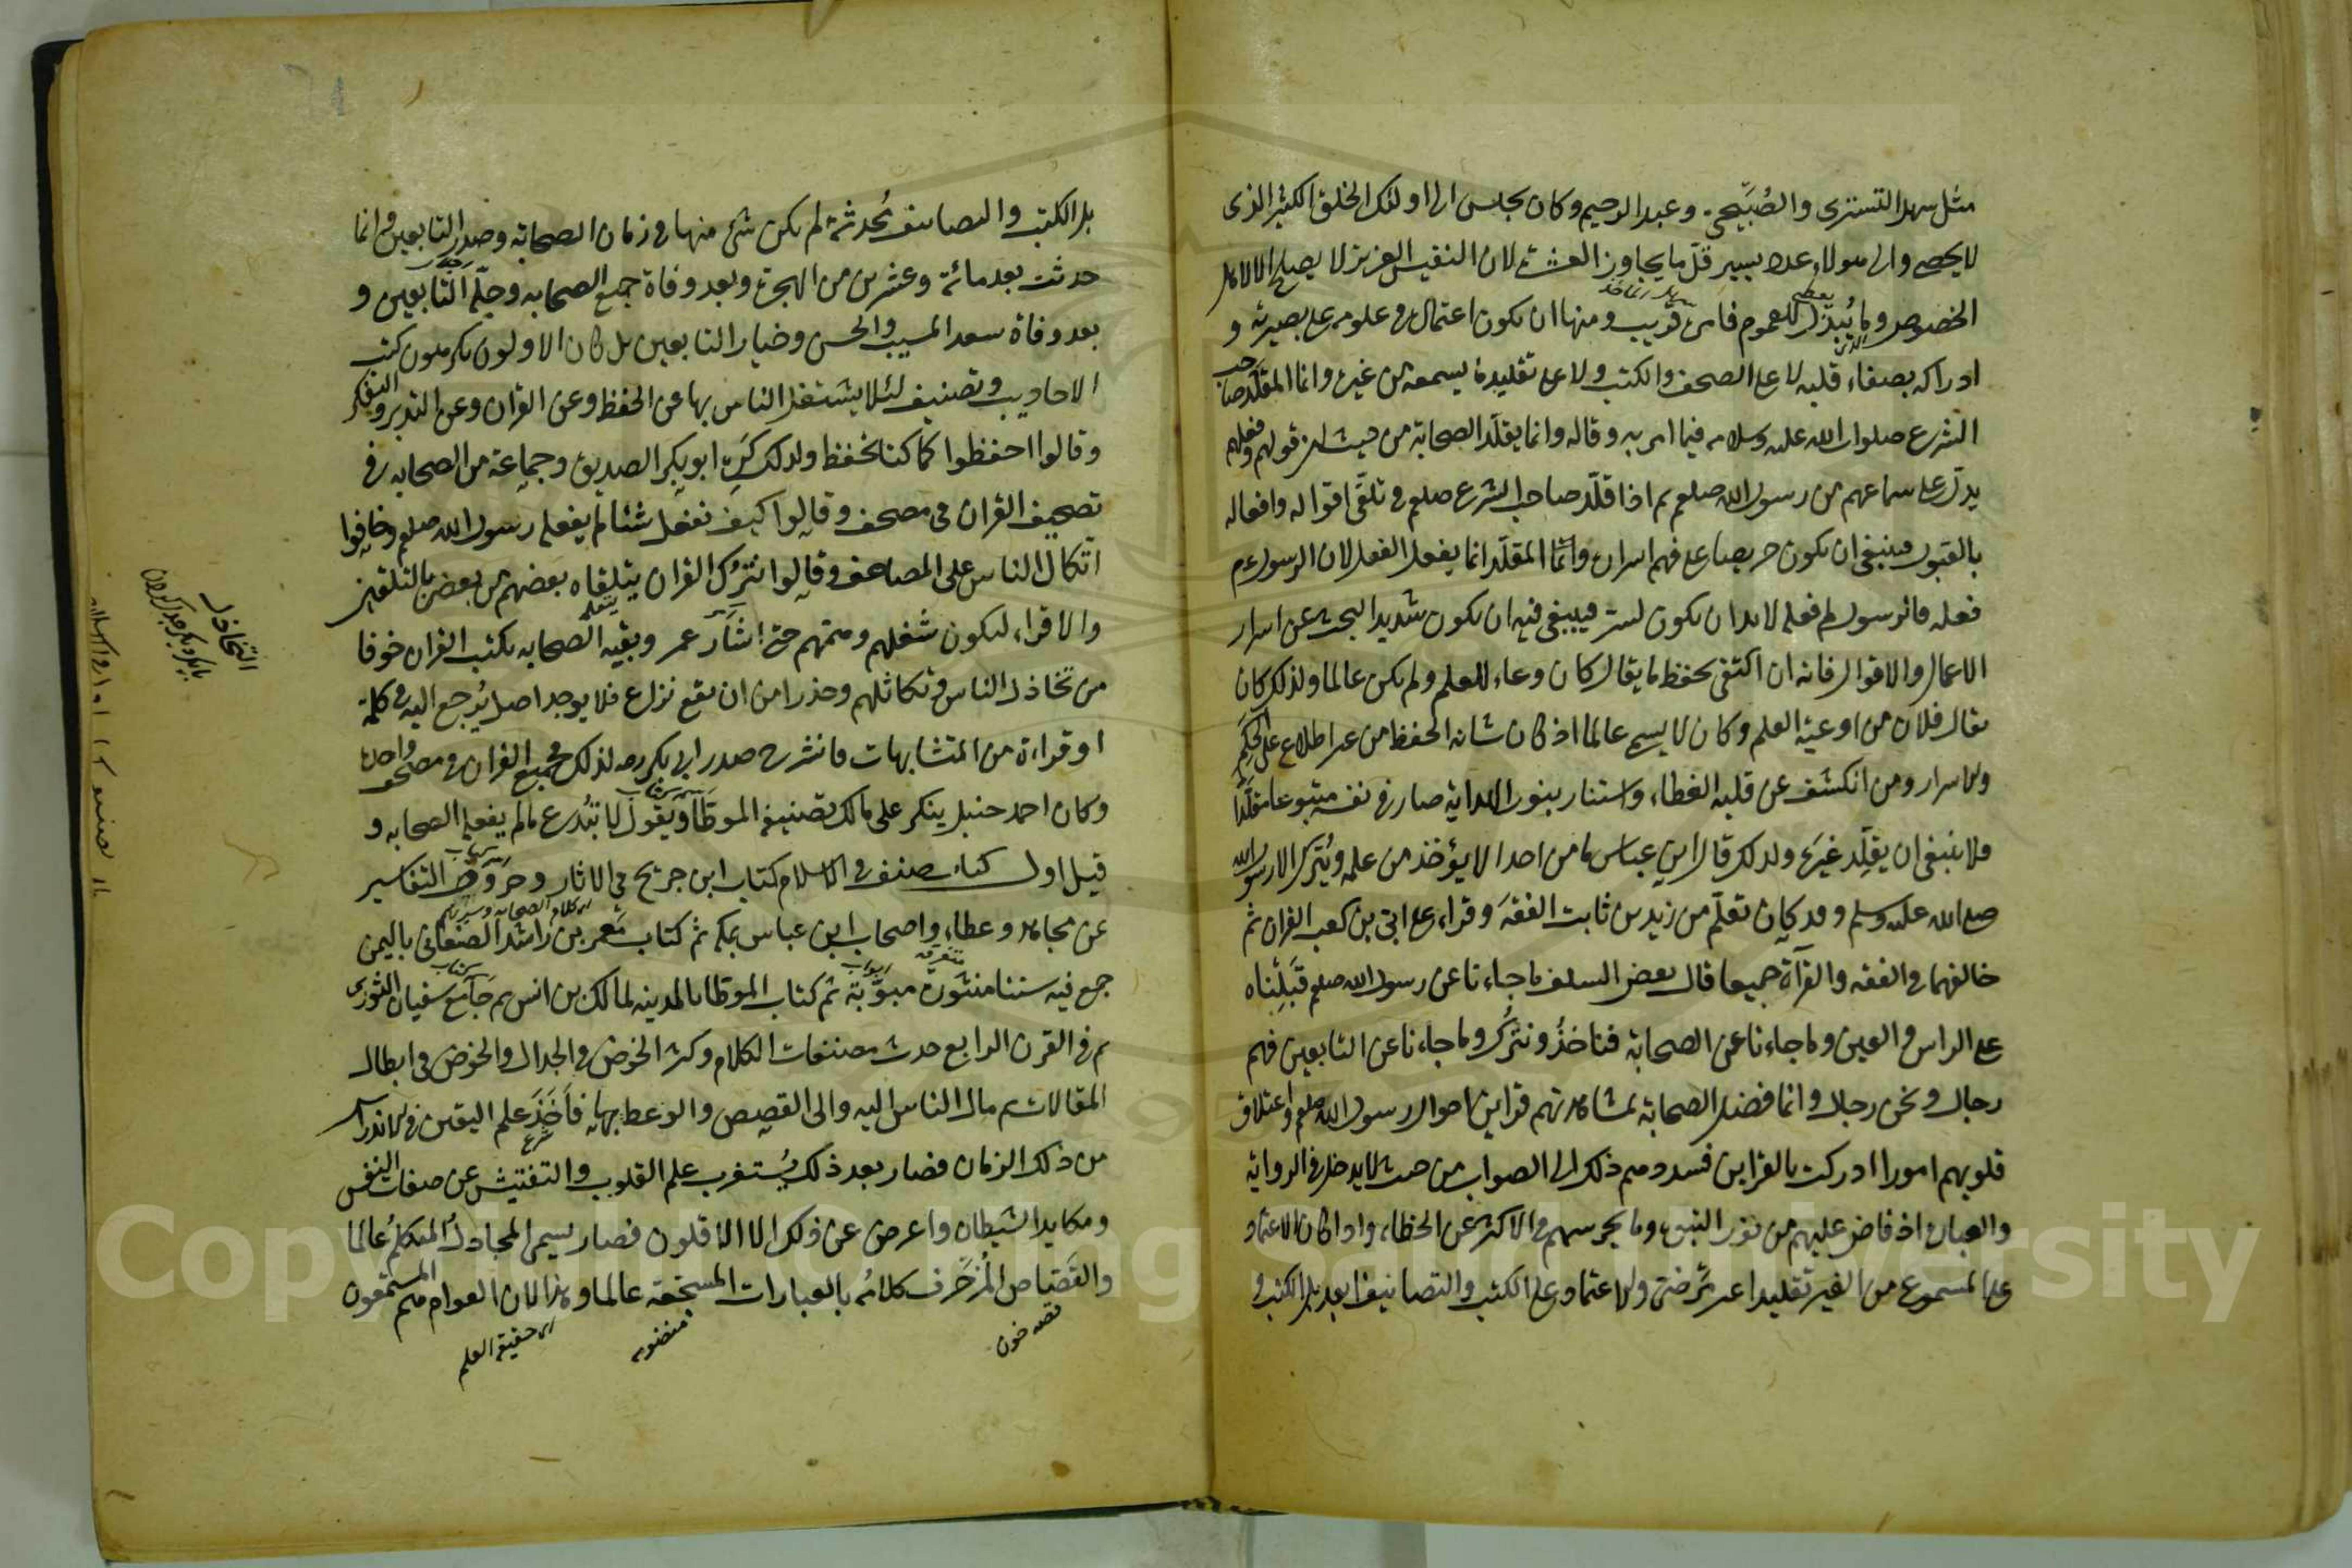 مثل سهل التستري والصُبَيحي وعبد الرحيم وكان يجلس الى اولئك الخلق الكثير الذى
لا يحصى والى هولاء عدد يسير قلّ ما يجاوز العشرة لان النفيس العزيز لا يصلح الا لاهل
الخصوص وما يُبذل للعموم فامره قريب ومنها ان يكون اعتماله فى علومه على بصيرته و
ادراكه بصفاء قلبه لا على الصحف والكتب ولا على تقليد ما يسمعه من غيره وانما المقلّد صاحب
الشرع صلوات الله عليه وسلامه فيما امر به وقاله وانما يقلّد الصحابة من حيث ان قولهم وفعلهم
يدلّ على سماعهم من رسول الله صلعم ثم اذا قلّد صاحب الشرع صلعم فى تلقّى اقواله وافعاله
بالقبول فينبغى ان يكون حريصا على فهم اسراره وانما المقلّد انما يفعل الفعل لان الرسول عم
فعله فالرسول لم فعله لا بد ان يكون لسر فينبغى فيه ان يكون شديد البحث عن اسرار
الاعمال والاقوال فانه ان اكتفى بحفظ ما يقال كان وعاء للعلم ولم يكن عالما ولذلك كان
يقال فلان من اوعية العلم وكان لا يسمى عالما اذ كان شانه الحفظ من غير اطلاع على الحِكَم
والاسرار ومن انكشف عن قلبه الغطاء واستنار بنور الهداية صار فى نفسه متبوعا مقلَّدا
فلا ينبغى ان يقلّد غيرَه ولذلك قال ابن عباس ما من احد الا يؤخذ من علمه ويُترك الا رسول الله
صلى الله عليه وسلم وقد كان تعلّم من زيد بن ثابت الفقهَ وقراء على ابىّ بن كعب القران ثم
خالفهما فى الفقه والقراة جميعا قال بعض السلف ما جاءنا عن رسول الله صلعم قَبِلْناه
على الراس والعين وما جاءنا عن الصحابة فناخذُ ونترُك وما جاءنا عن التابعين فهم
رجال ونحن رجال وانما فضل الصحابة لمشاهدتهم قراين احوال رسول الله صلعم واعتلاق
قلوبهم امورا ادركت بالقراين فسددهم ذلك الى الصواب من حيث لا يدخل فى الرواية
والعبارة اذ فاض عليهم من نور النبوة وما يحرسهم فى الاكثر عن الخطاء واذا كان الاعتماد
على المسموع من الغير تقليدا غير مرضى والاعتماد على الكتب والتصانيف ابعد بل الكتب و
بل الكتب والتصانيف مُحدثة لم يكن شئ منها فى زمان الصحابة وصدر التابعين وانما
حدثت بعد مائة وعشرين من الهجرة وبعد وفاة جميع الصحابه وجلّة التابعين و
بعد وفاة سعد المسيب والحسن وخيار التابعين بل كان الاولون يكرهون كتب
الاحاديث وتصنيف لئلا يشتغل الناس بها عن الحفظ وعن القران وعن التدبر والتفكر
وقالوا احفظوا كما كنا نحفظ ولذلك كَرِه ابو بكر الصديق وجماعة من الصحابه رض
تصحيف القران فى مصحف وقالوا كيف نفعل شئا لم يفعله رسول الله صلعم وخافوا
اتكال الناس على المصاحف وقالوا نترُك القران يتلقاه بعضهم من بعض بالتلقين
والاقراء ليكون شغلهم وهمّهم حتى اشار عمر وبقية الصحابه بكتب القران خوفا
من تخاذل الناس وتكاثلهم وحذرا من ان يقع نزاع فلا يوجد اصل يُرجع اليه فى كلمة
او قراءة من المتشابهات فانشرح صدر ابى بكر رضه لذلك فجمع القران فى مصحف واحد
وكان احمد حنبل ينكر على مالك تصنيفه الموطّأ ويقول لا تبتدع ما لم يفعله الصحابه و
قيل اول كتاب صنف فى الاسلام كتاب ابن جريج فى الاثار وحروف التفاسير
عن مجاهد وعطاء واصحاب ابن عباس بمكة ثم كتاب معمر بن راشد الصنعانى باليمن
جمع فيه سننا منثورة مبوّبة ثم كتاب الموطا بالمدينه لمالك بن انس ثم جامع سفيان الثورى
ثم فى القرن الرابع حدث مصنفات الكلام وكثر الخوض فى الجدال والخوض فى ابطال
المقالات ثم مال الناس اليه والى القصص والوعظ بها فاخذ علم اليقين فى الاندراس
من ذلك الزمان فصار بعد ذلك يُستغرب علم القلوب والتفتيش عن صفات النفس
ومكايد الشيطان واعرض عن ذلك الا الاقلون فصار يسمى المجادلُ المتكلمُ عالما
والقَصّاص المُزَخرِف كلامُه بالعبارات المسجّعة عالما وهذا لان العوام هم المستمعون
قصه خون
اى حقيقة العلم
التخاذل